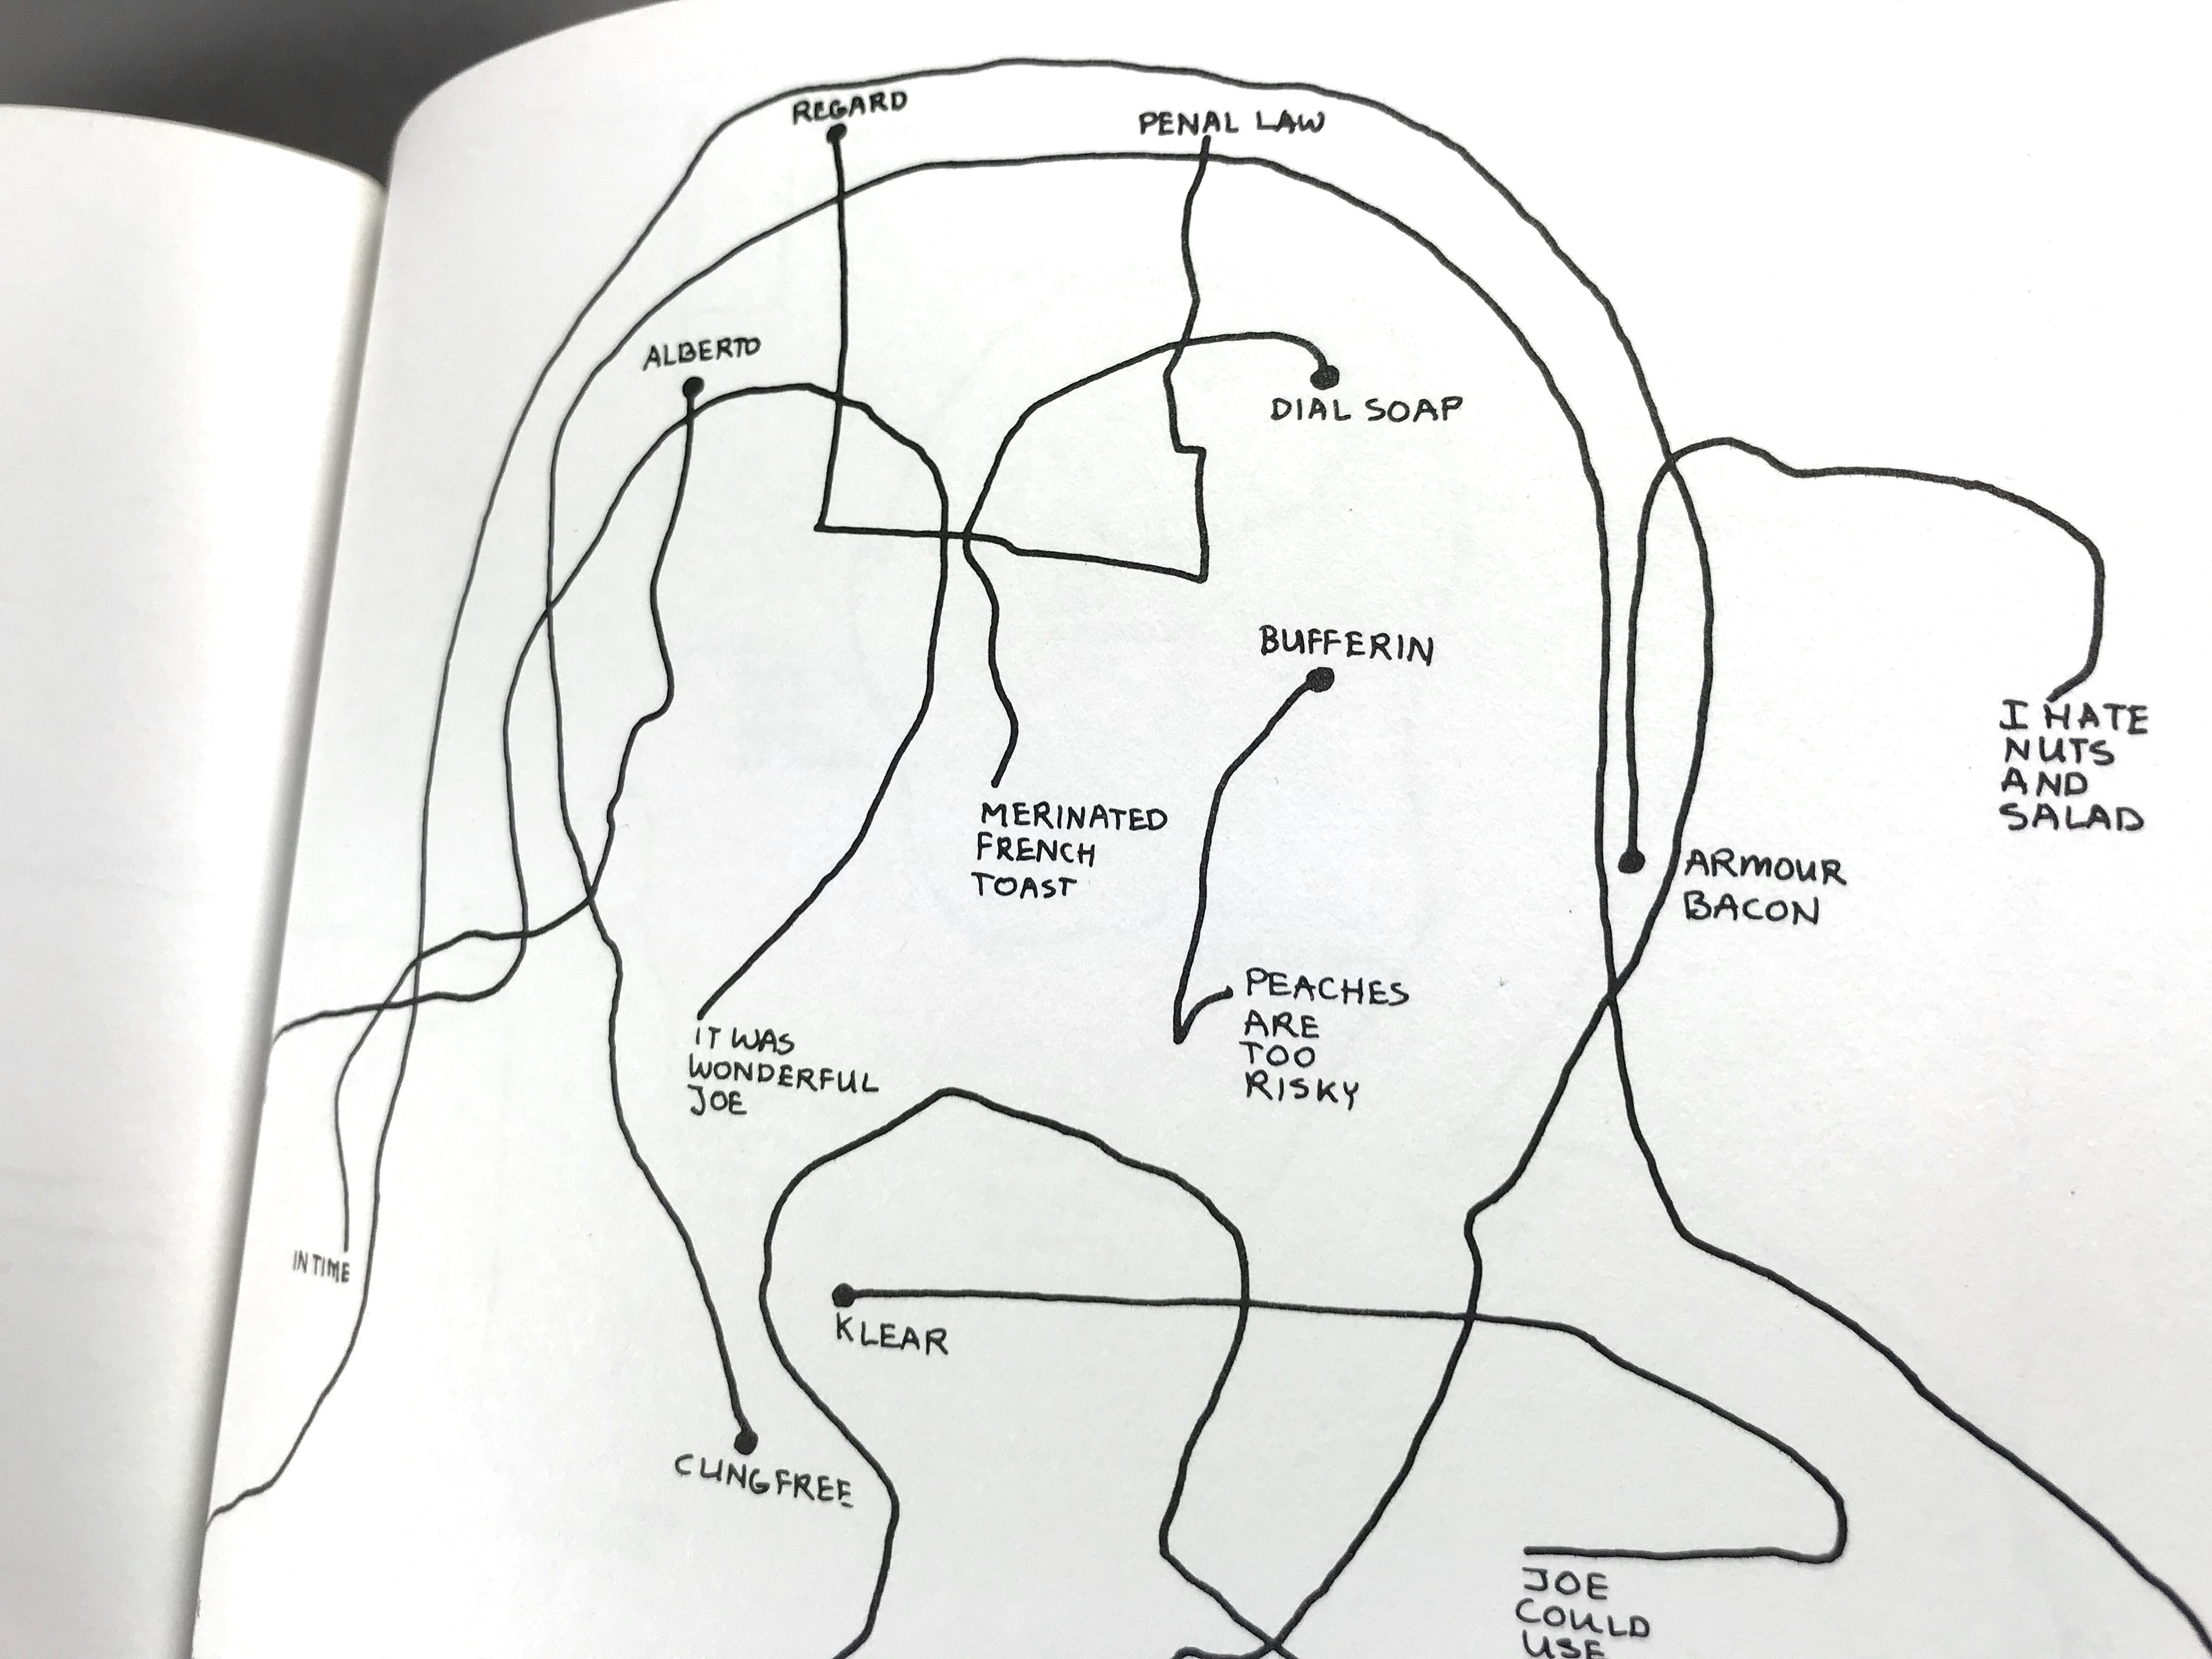 REGARD
PENAL LAW
ALBERTO
DIAL SOAP
BUFFERIN
I HATE
NUTS
AND
SALAD
MERINATED
FRENCH
TOAST
ARMOUR
BACON
PEACHES
ARE
TOO
RISKY
IT WAS
WONDERFUL
JOE
IN TIME
KLEAR
CLINGFREE
JOE
COULD
USE